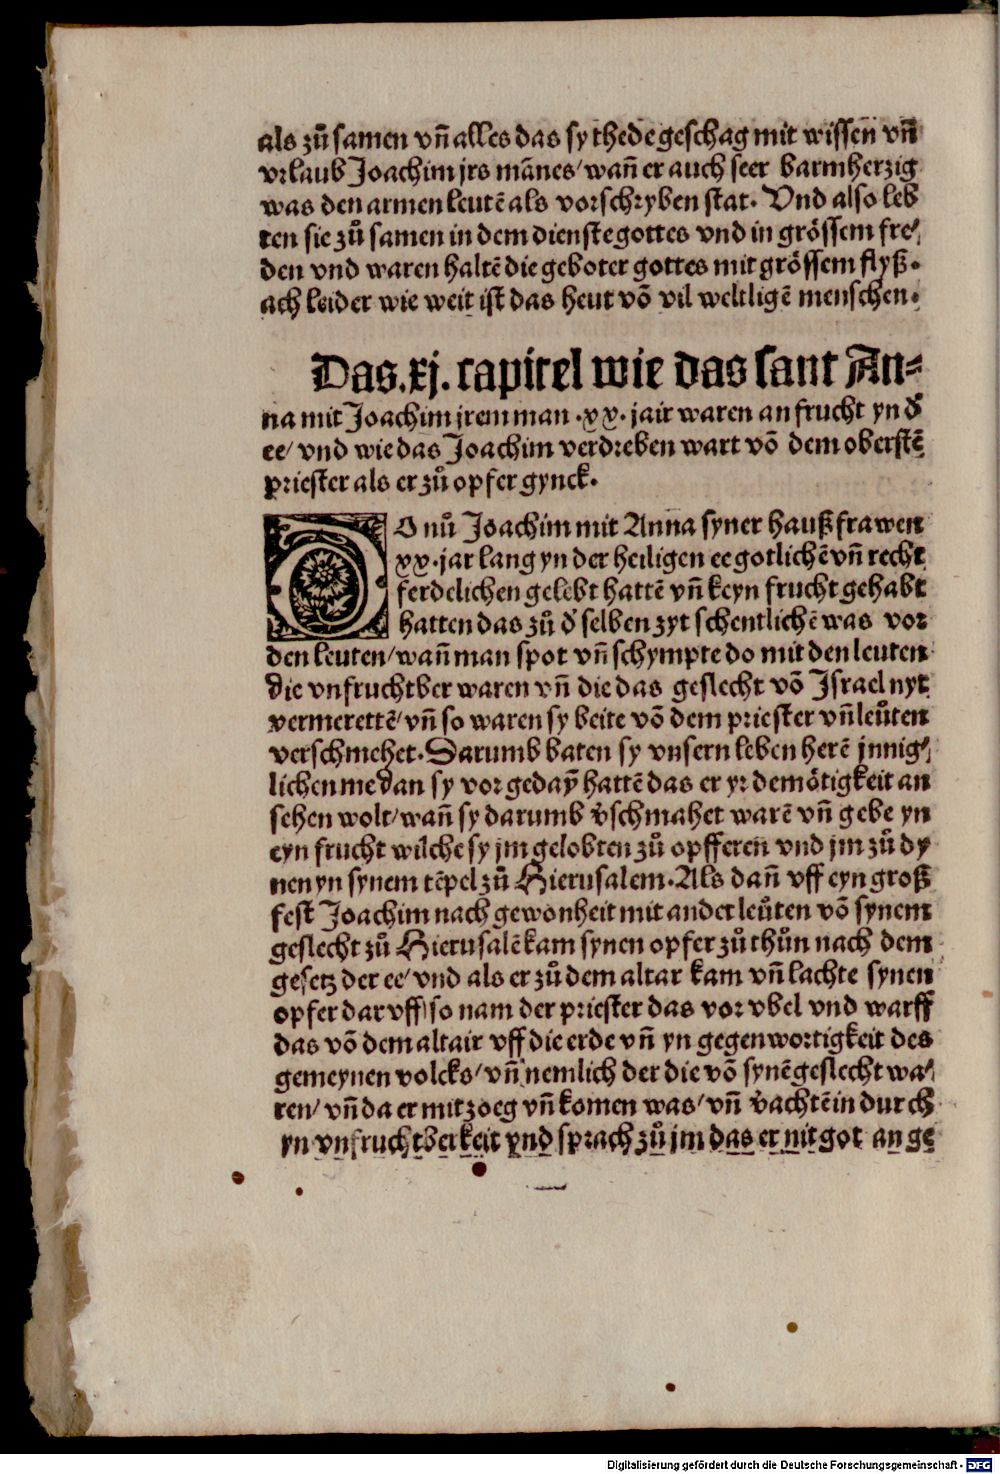 als zů samen vñ alles das sy thede geschag mit wissen vñ
vrlaub Joachim jrs mãnes/ wañ er auch seer barmherzig
was den armen leutẽ als vorschryben stat. Vnd also leb
ten sie zů samen in dem dienste gottes vnd in grössem fre/
den vnd waren haltẽ die geboter gottes mit grössem flyß.
ach leider wie weit ist das heut võ vil weltligẽ menschen.
Das .xj. capitel wie das sant An=
na mit Joachim jrem man .xx. jair waren an frucht yn d̕
ee/ vnd wie das Joachim verdreben wart võ dem oberstẽ
priester als er zů opfer gynck.
DO nů Joachim mit Anna syner haußfrawen
xx. jar lang yn der heiligen ee gotlichẽ vñ recht
ferdelichen gelebt hattẽ vñ keyn frucht gehabt
hatten das zů d̕ selben zyt schentlichẽ was vor
den leuten/ wañ man spot vñ schympte do mit den leuten
die vnfruchtber waren vñ die das geslecht võ Israel nyt
vermerettẽ/ vñ so waren sy beite võ dem priester vñ leůten
verschmehet. Darumb baten sy vnsern leben herẽ jnnig/
lichen me dan sy vor gedaÿ hattẽ das er yr demötigkeit an
sehen wolt/ wañ sy darumb v̕schmahet warẽ vñ gebe yn
eyn frucht wilche sy jm gelobten zů opfferen vnd jm zů dy
nen yn synem tẽpel zů Hierusalem. Als dañ vff eyn groß
fest Joachim nach gewonheit mit ander leůten võ synem
geslecht zů Hierusalẽ kam synen opfer zů thůn nach dem
gesetz der ee/ vnd als er zů dem altar kam vñ lachte synen
opfer dar vff/ so nam der priester das vor vbel vnd warff
das võ dem altair vff die erde vñ yn gegenwortigkeit des
gemeynen volcks/ vñ nemlich der die võ synẽ geslecht wa/
ren/ vñ da er mit zoeg vñ komen was/ vñ v̕achtẽ in durch
yn vnfruchtberkeit vnd sprach zů jm das er nit got an ge
Digitalisierung gefördert durch die Deutsche Forschungsgemeinschaft - DFG